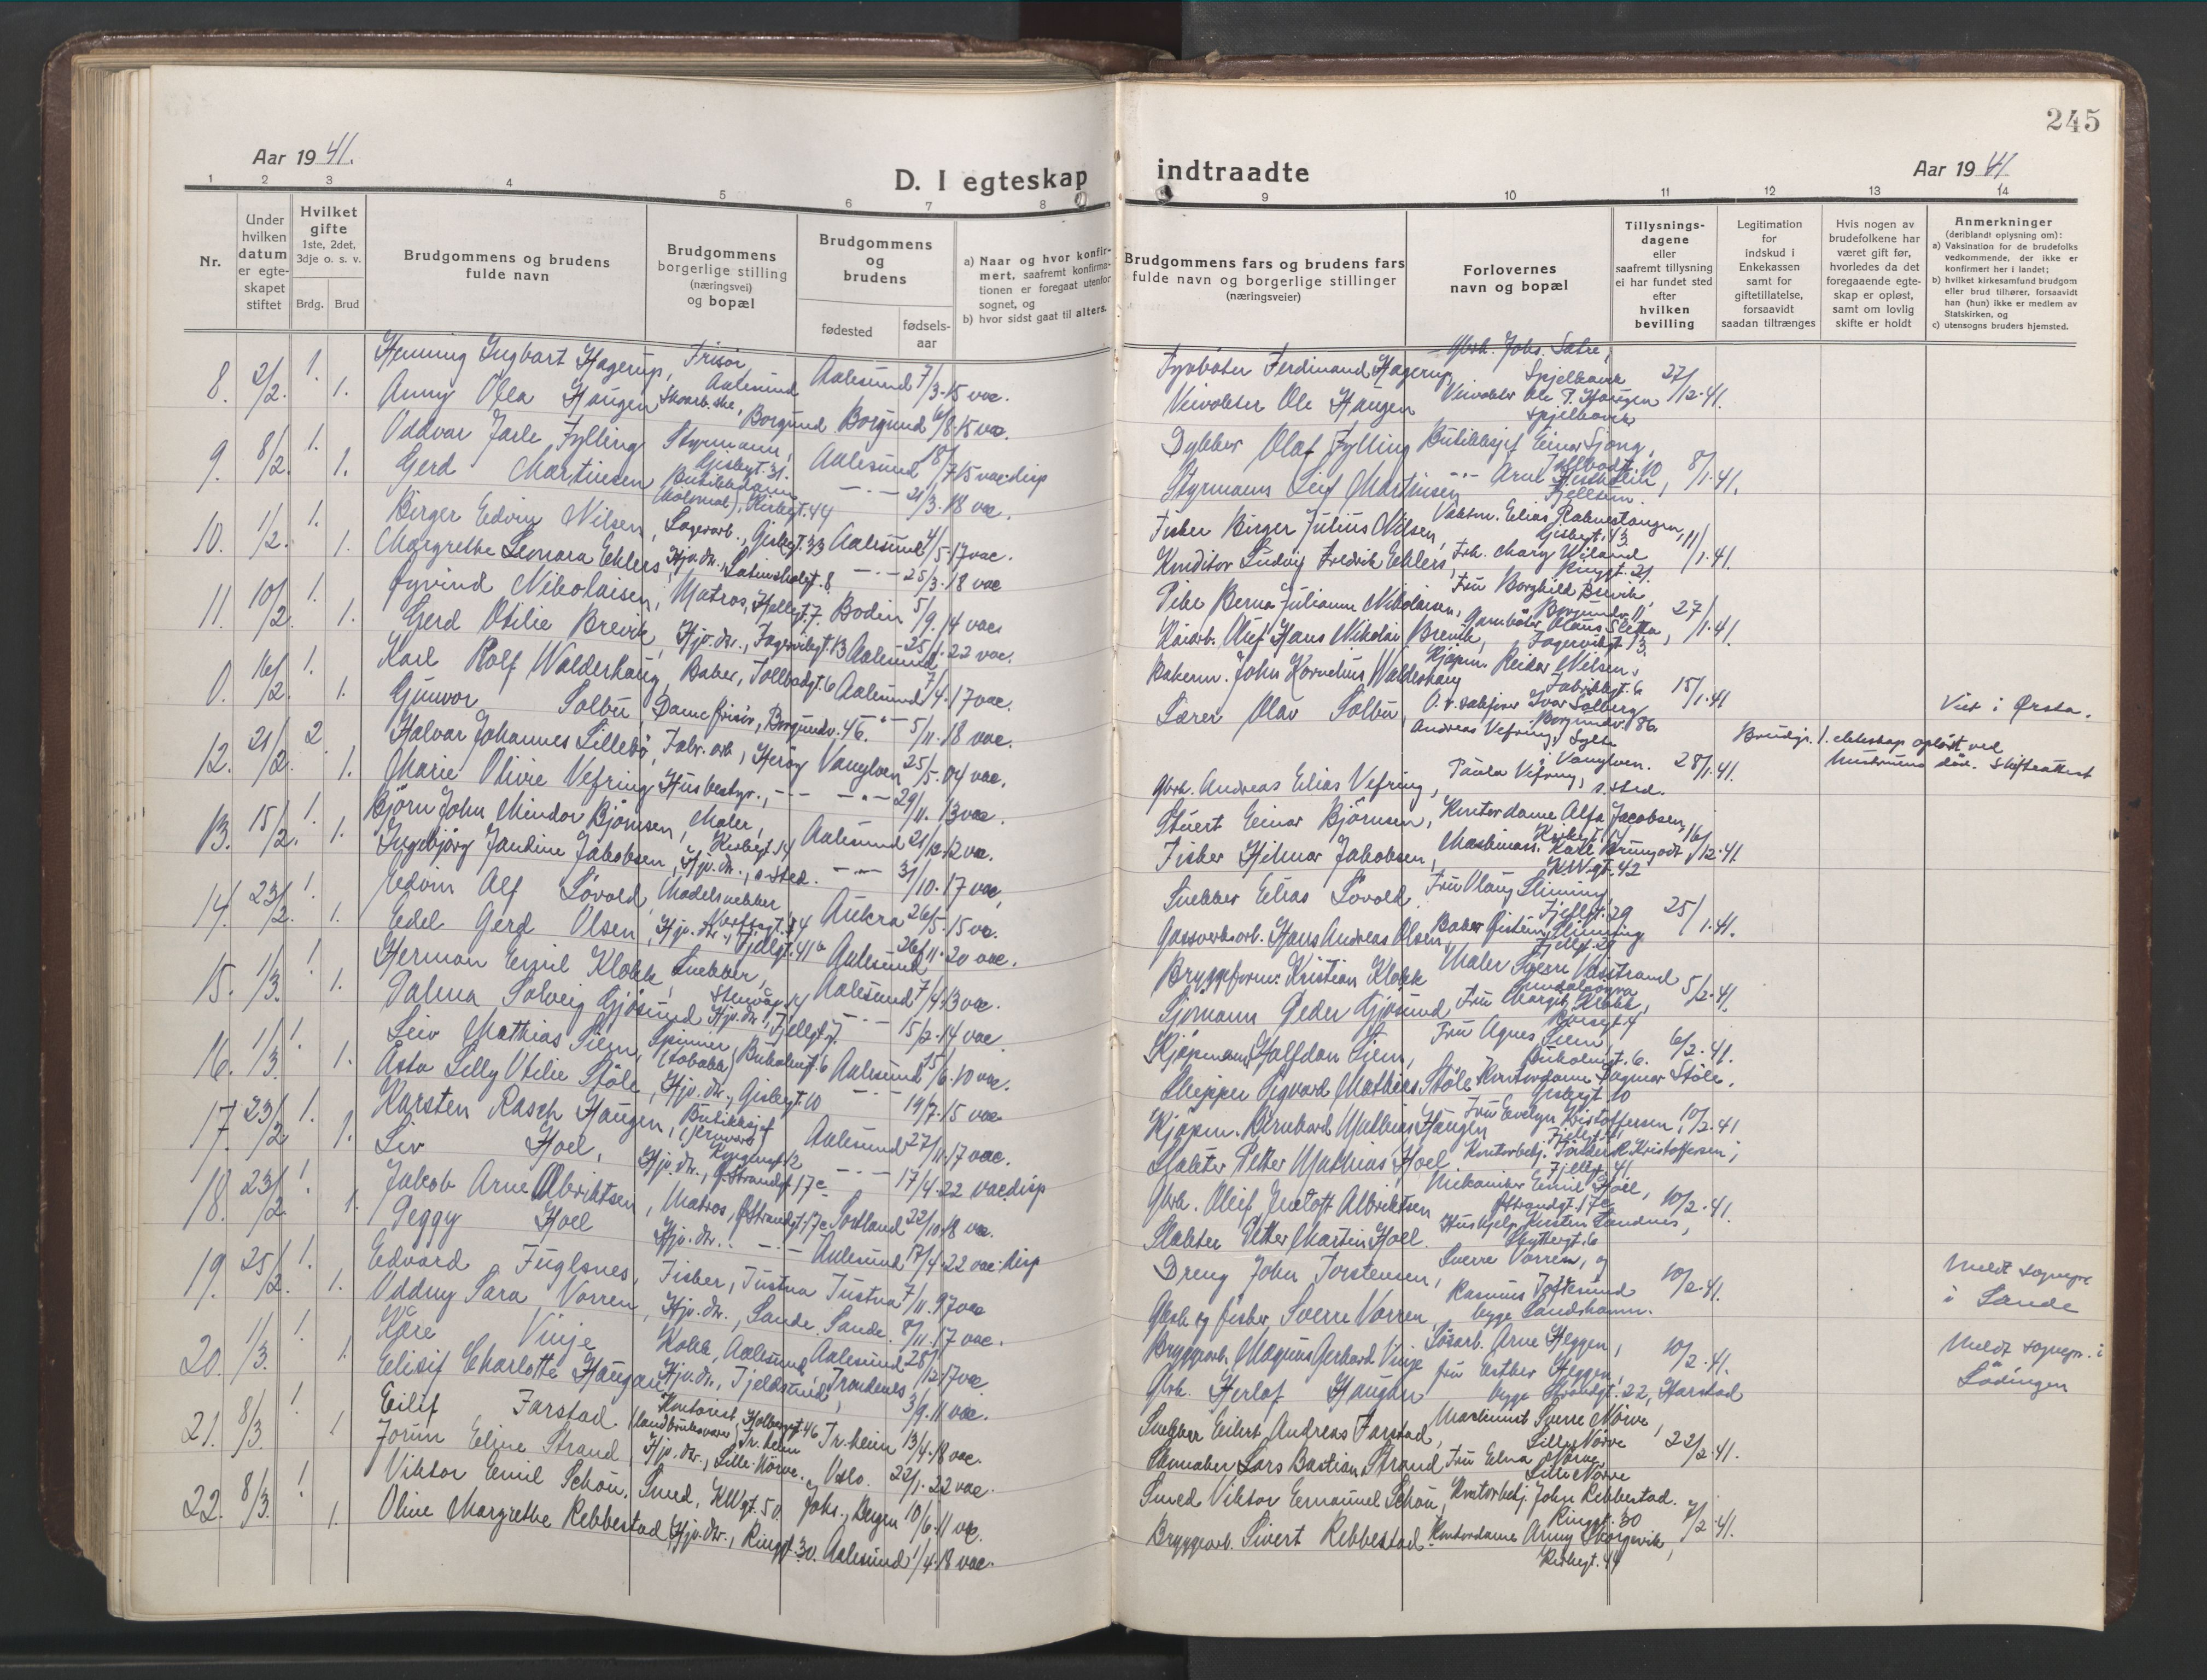 245
Aar 1941.
D. I egteskap indtraadte
Aar 1941
1 2 3 4 5 6 7 8 9 10 11 12 13 14
Nr.
Under hvilken datum er egteskapet stiftet
Hvilket gifte
1ste, 2det, 3dje o. s. v.
Brdg. Brud
Brudgommens og brudens fulde navn
Brudgommens borgerlige stilling (næringsvei) og bopæl
Brudgommens og brudens
fødested
fødsels-aar
a) Naar og hvor konfirmert, saafremt konfirmationen er foregaat utenfor sognet, og
b) hvor sidst gaat til alters.
Brudgommens fars og brudens fars fulde navn og borgerlige stillinger (næringsveier)
Forlovernes navn og bopæl
Tillysningsdagene eller saafremt tillysning ei har fundet sted efter hvilken bevilling
Legitimation for indskud i Enkekassen samt for giftetillatelse, forsaavidt saadan tiltrænges
Hvis nogen av brudefolkene har været gift før, hvorledes da det foregaaende egteskap er opløst, samt om lovlig skifte er holdt
Anmerkninger
(deriblandt oplysning om):
a) Vaksination for de brudefolks vedkommende, der ikke er konfirmert her i landet;
b) hvilket kirkesamfund brudgom eller brud tilhører, forsaavidt han (hun) ikke er medlem av Statskirken, og
c) utensogns bruders hjemsted.
8. 2/2. 1. Henning Ingbart Hagerup, Frisör Aalesund Aalesund 7/3.15 vac. Ferdinand Hagerup, Gbrk. Johs. Sætre, Spjelkavik 27/12.41.
1. Anny Olea Haugen Borgund Borgund 6/8.15 vac. Veivokter Ole Haugen Veivokter Ole P. Haugen Spjelkavik
9. 8/2. 1. Oddvar Jarle Fylling Styrmann, Aalesund 18/7.15 vac. disp Dykker Olaf Fylling Butikksjef Einar 8/1.41.
1. Gerd Martinsen Kirkegt. 44 21/3.18 vac. Styrmann Leif Martinsen
10. 1/2. 1. Birger Edvin Nilsen, Lagerarb., Gisbegt. 33 Aalesund 4/5.17 vac. Fisker Birger Julius Nilsen, Elias Rabnestangen, 11/1.41.
1. Margrethe Leonara Ehlers, Hjv. dtr., 25/3.18 vac Konditor Ludvig Fredrik Ehlers, Frk. Mary Wiland Ringgt. 21.
11. 10/2. 1. Øyvind Nikolaisen, Matros, Bodin 5/9.14 vac. Pike Berna Julianne Nikolaisen, Fru Borghild Brevik, 27/1.41.
1. Gerd Otilie Brevik, Hjv. dtr., Fagervikgt. 13 Aalesund 22 vac. Olaf Hans Nikolai Brevik, Fagervikgt. 13.
0. 16/2. 1. Karl Rolf Walderhaug, Baker, Tollbodgt. 6 Aalesund 7/4.17 vac. Bakerm. John Kornelius Walderhaug Kjöpm. Reidar Nilsen, 15/1.41
1. Gunvor Solbu, Damefrisör, Borgundv. 46. 5/11.18 vac. Lærer Olav Solbu, Ivar Solberg Borgundv. 86 Viet i Ørsta.
12. 21/2. 2 Halvar Johannes Lillebö, Fabr. arb., Heröy Vanylven 25/5.04 vac. Andreas Vefring, Sylte i Vanylven. 28/1.41. Brudgr. 1. ekteskap oplöst ved hustruens död. Skifteattest
1. Marie Olivie Vefring Husbestyr., 29/11.13 vac. Gbrk. Andreas Elias Vefring, Paula Vefring, s. sted.
13. 15/2. 1. Björn John Mindor Björnsen, Maler, Kirkegt. 14 Aalesund 21/12.12 vac. Stuert Einar Björnsen, Kontordame Alfa Jacobsen, 16/12.41.
1. Ingebjörg Jandine Jakobsen, Hjv. dtr., s. sted. 31/10.17 vac, Fisker Hilmar Jakobsen, Maskinass. Karl KWgt. 42
14. 23/2. 1. Edvin Alf Lövold, Modelsnekker Aukra 26/5.15 vac. Snekker Elias Lövold, Fru Olaug Sliming Fjellgt. 29 25/1.41.
1. Edel Gerd Olsen, Hjv. dtr., Fjellgt. 41a Aalesund 26/11.20 vac. Gassverksarb. Hans Andreas Olsen, Baker Øistein Sliming Fjellgt. 29
15. 1/3. 1. Herman Emil Klokk, Snekker, Aalesund 7/4.13 vac. Bryggeformann Kristian Klokk Maler Sverre Vasstrand 5/2.41.
1. Palma Solveig Gjösund Hjv. dtr., Fjellgt. 7. 15/2.14 vac. Sjömann Peder Gjösund Fru Margit Klokk,
16. 1/3. 1. Leiv Mathias Siem, Spinner (tobakk) Bukholmgt. 6 Aalesund 15/6.10 vac. Kjöpmann Halfdan Siem, Fru Agnes Siem, Bukholmgt. 6. 6/2.41.
1. Asta Lilly Otilie Stöle, Hjv. dtr., Gisbegt. 10 19/7.15 vac Skipper Sigvard Mathias Stöle Kontordame Dagmar Stöle, Gisbegt. 10
17. 23/2 1. Karsten Rasch Haugen, Butikksjef Aalesund 27/11.17 vac. Kjöpm. Bernhard Mathias Haugen Fru Evelyn Kristoffersen, 10/2.41
1. Liv Hoel, Hjv. dtr., Ø. Strandgt. 17c 17/4.22 vac. disp Slakter Petter Mathias Hoel. Kontorbetj. Kristoffersen, Fjellgt. 41
18. 23/2. 1. Jakob Arne Albriktsen, Matros, Ø. Strandgt. 17c Sortland 22/10.18 vac. Gbrk. Oleif Albriktsen Mekaniker Emil Hoel, Ø. Strandgt. 17c 10/2.41.
1. Peggy Hoel Hjv. dtr. Aalesund 17/4.22 vac. disp Slakter Petter Martin Hoel. Hushjelp Kirsten Sandnes,
19. 25/2. 1. Edvard Fuglsnes, Fisker, Tustna Tustna 7/11.97 vac Dreng John Torstensen, Sverre Vorren, og 10/2.41. Meldt sognepr. i Sande
1. Oddny Sara Vorren, Hjv. dtr., Sande. Sande. 8/11.17 vac. Gbrk og fisker, Sverre Vorren, Rasmus begge Sandshamn.
20. 1/3. 1. Kåre Vinje Kokk, Aalesund Aalesund 28/12.17 vac. Bryggearb. Magnus Gerhard Vinje Arne Heggen, 10/2.41. Meldt sognepr. i Lödingen
1. Elisif Charlotte Haugan Hjv. dtr., Tjeldsund, Trondenes 3/9.11 vac. Gbrk. Herlof Haugan fru Esther Heggen, begge Strandgt. 22, Harstad
21. 8/3. 1. Eilif Farstad. Kontorist Tr. heim 13/4.18 vac. Snekker Eilert Andreas Farstad, Maskinist Sverre Nörve, Lille Nörve 22/2.41.
1 Jorun Eline Strand, Hjv. dtr., Lille-Nörve. Oslo. 22/1.22 vac. Skomaker Lars Bastian Strand Fru Elna Nörve, Lille Nörve
22. 8/3. 1. Viktor Emil Schöu, Smed, KWgt. 50. Johs., Bergen 10/6.11 vac. Smed Viktor Emanuel Schöu, Kontorbetj. John Rebbestad. Ringgt. 30 7/2.41.
1. Oline Margrethe Rebbestad, Hjv. dtr., Ringgt. 30. Aalesund 1/4.18 vac. Bryggearb. Sivert Rebbestad. Kontordame Anny Kirkegt. 44